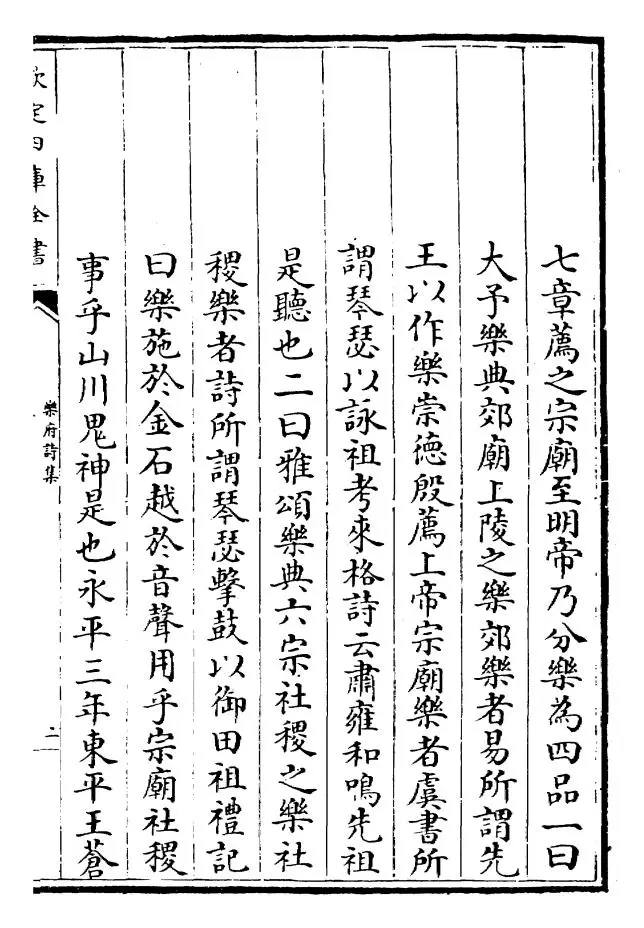 七章薦之宗廟至明帝乃分樂為四品一曰
大予樂典郊廟上陵之樂郊樂者易所謂先
王以作樂崇德殷薦上帝宗廟樂者虞書所
謂琴瑟以詠祖考來格詩云肅雍和鳴先祖
是聽也二曰雅頌樂典六宗社稷之樂社
稷樂者詩所謂琴瑟擊鼓以御田祖禮記
曰樂施於金石越於音聲用乎宗廟社稷
事乎山川鬼神是也永平三年東平王蒼
欽定四庫全書
樂府詩集
二